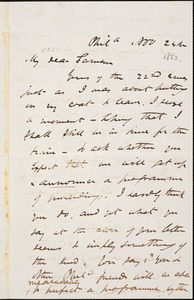 Phil.a Nov 24th
1862.
My dear
Yours of the 22nd came
just as I was about putting
on my coat to leave, I pause
a moment - hoping that I
shall still be in time for the
train - to ask whether you
expect that we will get up
& announce a programme
of proceedings. I hardly think
you do, and yet what you
say at the close of your letter
seems to imply something of
the kind. You say "you &
other Phil.a friends will be able
to perfect a programme